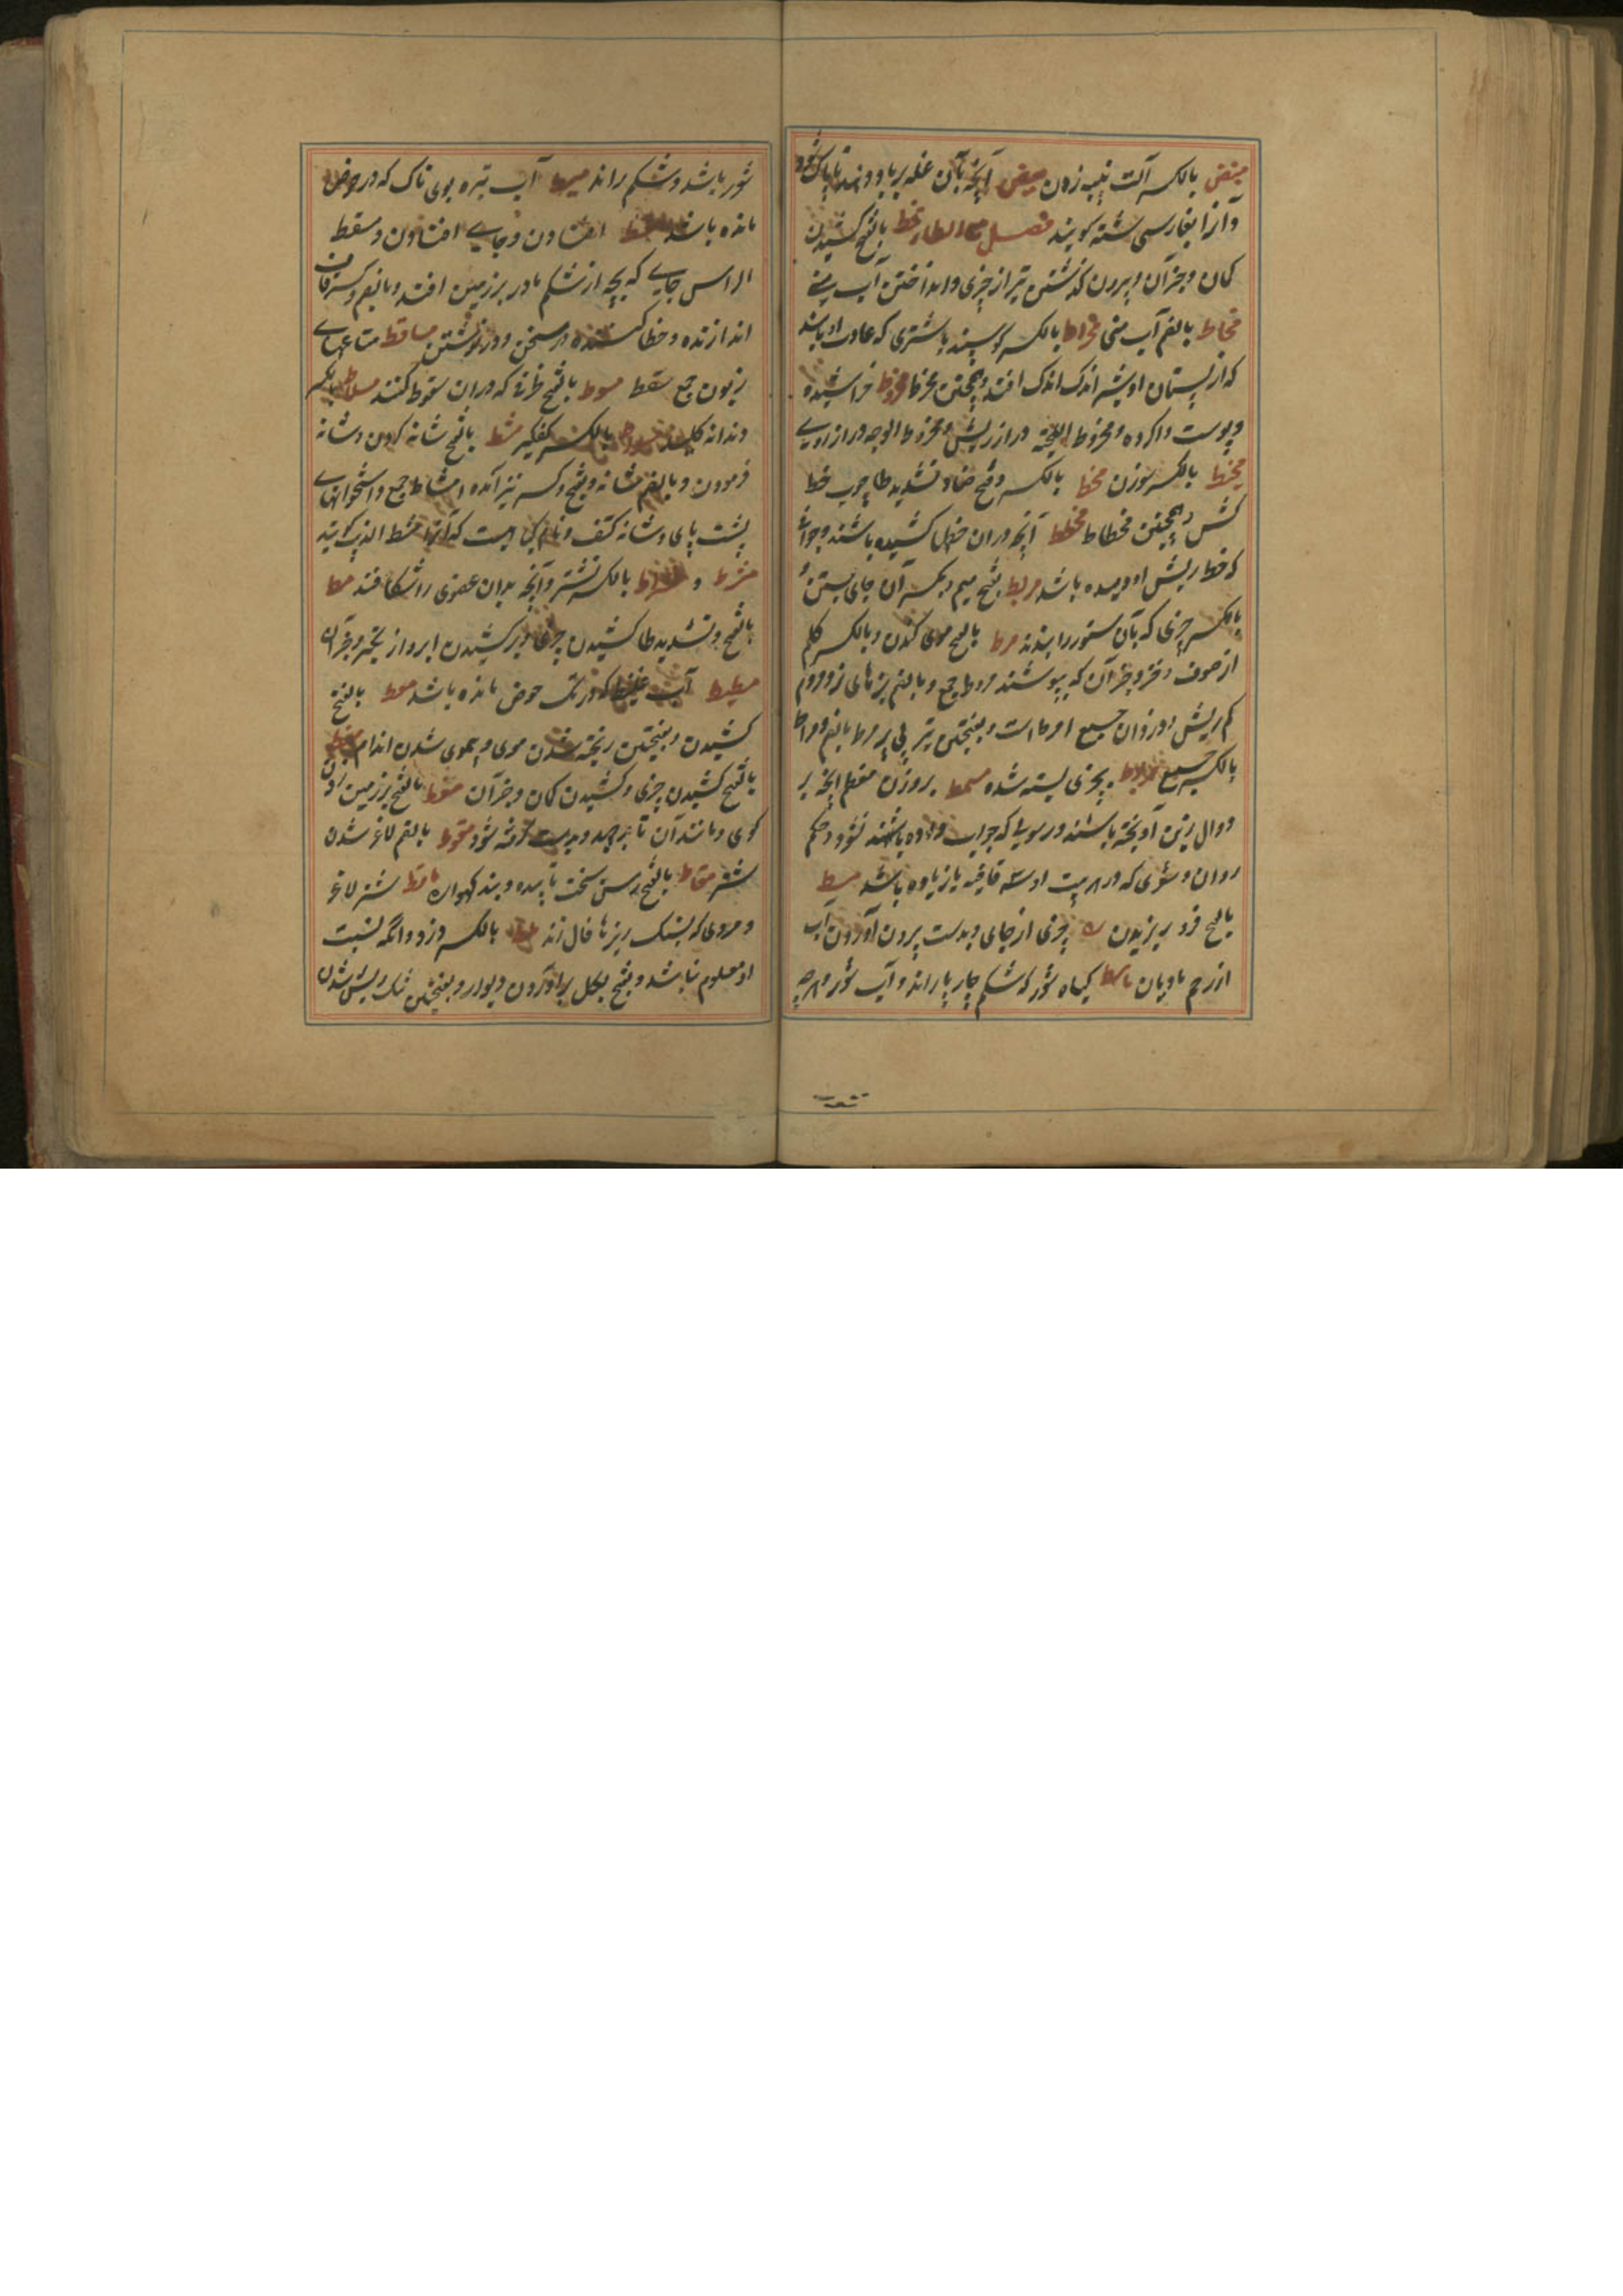 بالکسر آلت پنبه زدن آنچه بآن غله بر باد دهند تا پاک شود
و آنرا بفارسی شنه کویند فصل مع الطا مخط بالفتح کشیدن
کمان و جز آن و بیرون کذشتن تیر از چیزی و انداختن آب بینی
مخاط بالضم آب بینی مخراط بالکسر کوسپند یا شتری که عادت او باشد
که از پستان او شیر اندک اندک افتد و همچنین مخرط مخروط خراشیده
و پوست واکرده و مخروط اللحیة دراز ریش و مخروط الوجه دراز روی
مخیط بالکسر سوزن مخط بالکسر و فتح خا و تشدید طا چوب خط
کش و همچنین مخطاط مخطط آنچه در ان خطها کشیده باشند و جوانی
که خط ریش او دمیده باشد مربط بفتح میم و بکسر آن جای بستن و
بالکسر چیزی که بآن ستور را بندند مرط بالفتح موی کندن و بالکسر کلیم
از صوف و خز و جز آن که بپوشند مروط جمع و بالضم تیرهای
کم ریش و دزدان جمع امرط است و بضمتین تیر بی پر مرط بالضم و مراط
بالکسر جمع مربوط بچیزی بسته شده مسمط بر وزن معظم آنچه بر
دوال زین آویخته باشند و رسولی که جواب داده باشند نشود و حکم
روان و شعری که در هر بیت او سه قافیه یا زیاده باشد مسط
بالفتح چیزی از جای و بدست بیرون آوردن آب
از رحم مادیان ماسط کیاه شور که شکم چارپا راند و آب شور و هر چه
شور باشد و شکم راند مسیط آب تیره بوی ناک که در حوض
مانده باشد مسقط افتادن و جای افتادن و مسقط
الراس جایی که بچه از شکم مادر بر زمین افتد و بالضم و کسر قاف
اندازنده و خطا کننده در سخن و در نوشتن مساقط متاعهای
زبون جمع سقط مسعط بالفتح ظرفی که در ان سعوط کنند مسلاط بالکسر
دندانه کلید بالکسر کفکیر مشط بالفتح شانه کردن و شانه
فرمودن و بالضم شانه و بفتح و کسر نیز آمده امشاط جمع و استخوانهای
پشت پای و شانه کتف و نام است که آنرا مشط الذئب کویند
مشرط و مشراط بالکسر نشتر و آنچه بدان عضوی را شکافند مط
بالفتح و تشدید طا کشیدن چیزی و بر کشیدن ابرو از تکبر و جز آن
مطیط آب غلیظ که در تک حوض مانده باشد معط بالفتح
کشیدن و بفتحتین ریخته شدن موی و بی موی شدن اندام مغط
بالفتح کشیدن چیزی و کشیدن کمان و جز آن مقط بالفتح بر زمین زدن
کوی و مانند آن تا بر جهد و بدست کرفته شود مقوط بالضم لاغر شدن
شتر مقاط بالفتح رسن سخت تابیده و بند کهواره ماقط شتر لاغر
و مردی که بسنک ریزها فال زند ملط بالکسر دزد و آنکه نسبت
او معلوم نباشد و بفتح بکل بر آوردن دیوار و بفتحتین تنک ریش شدن